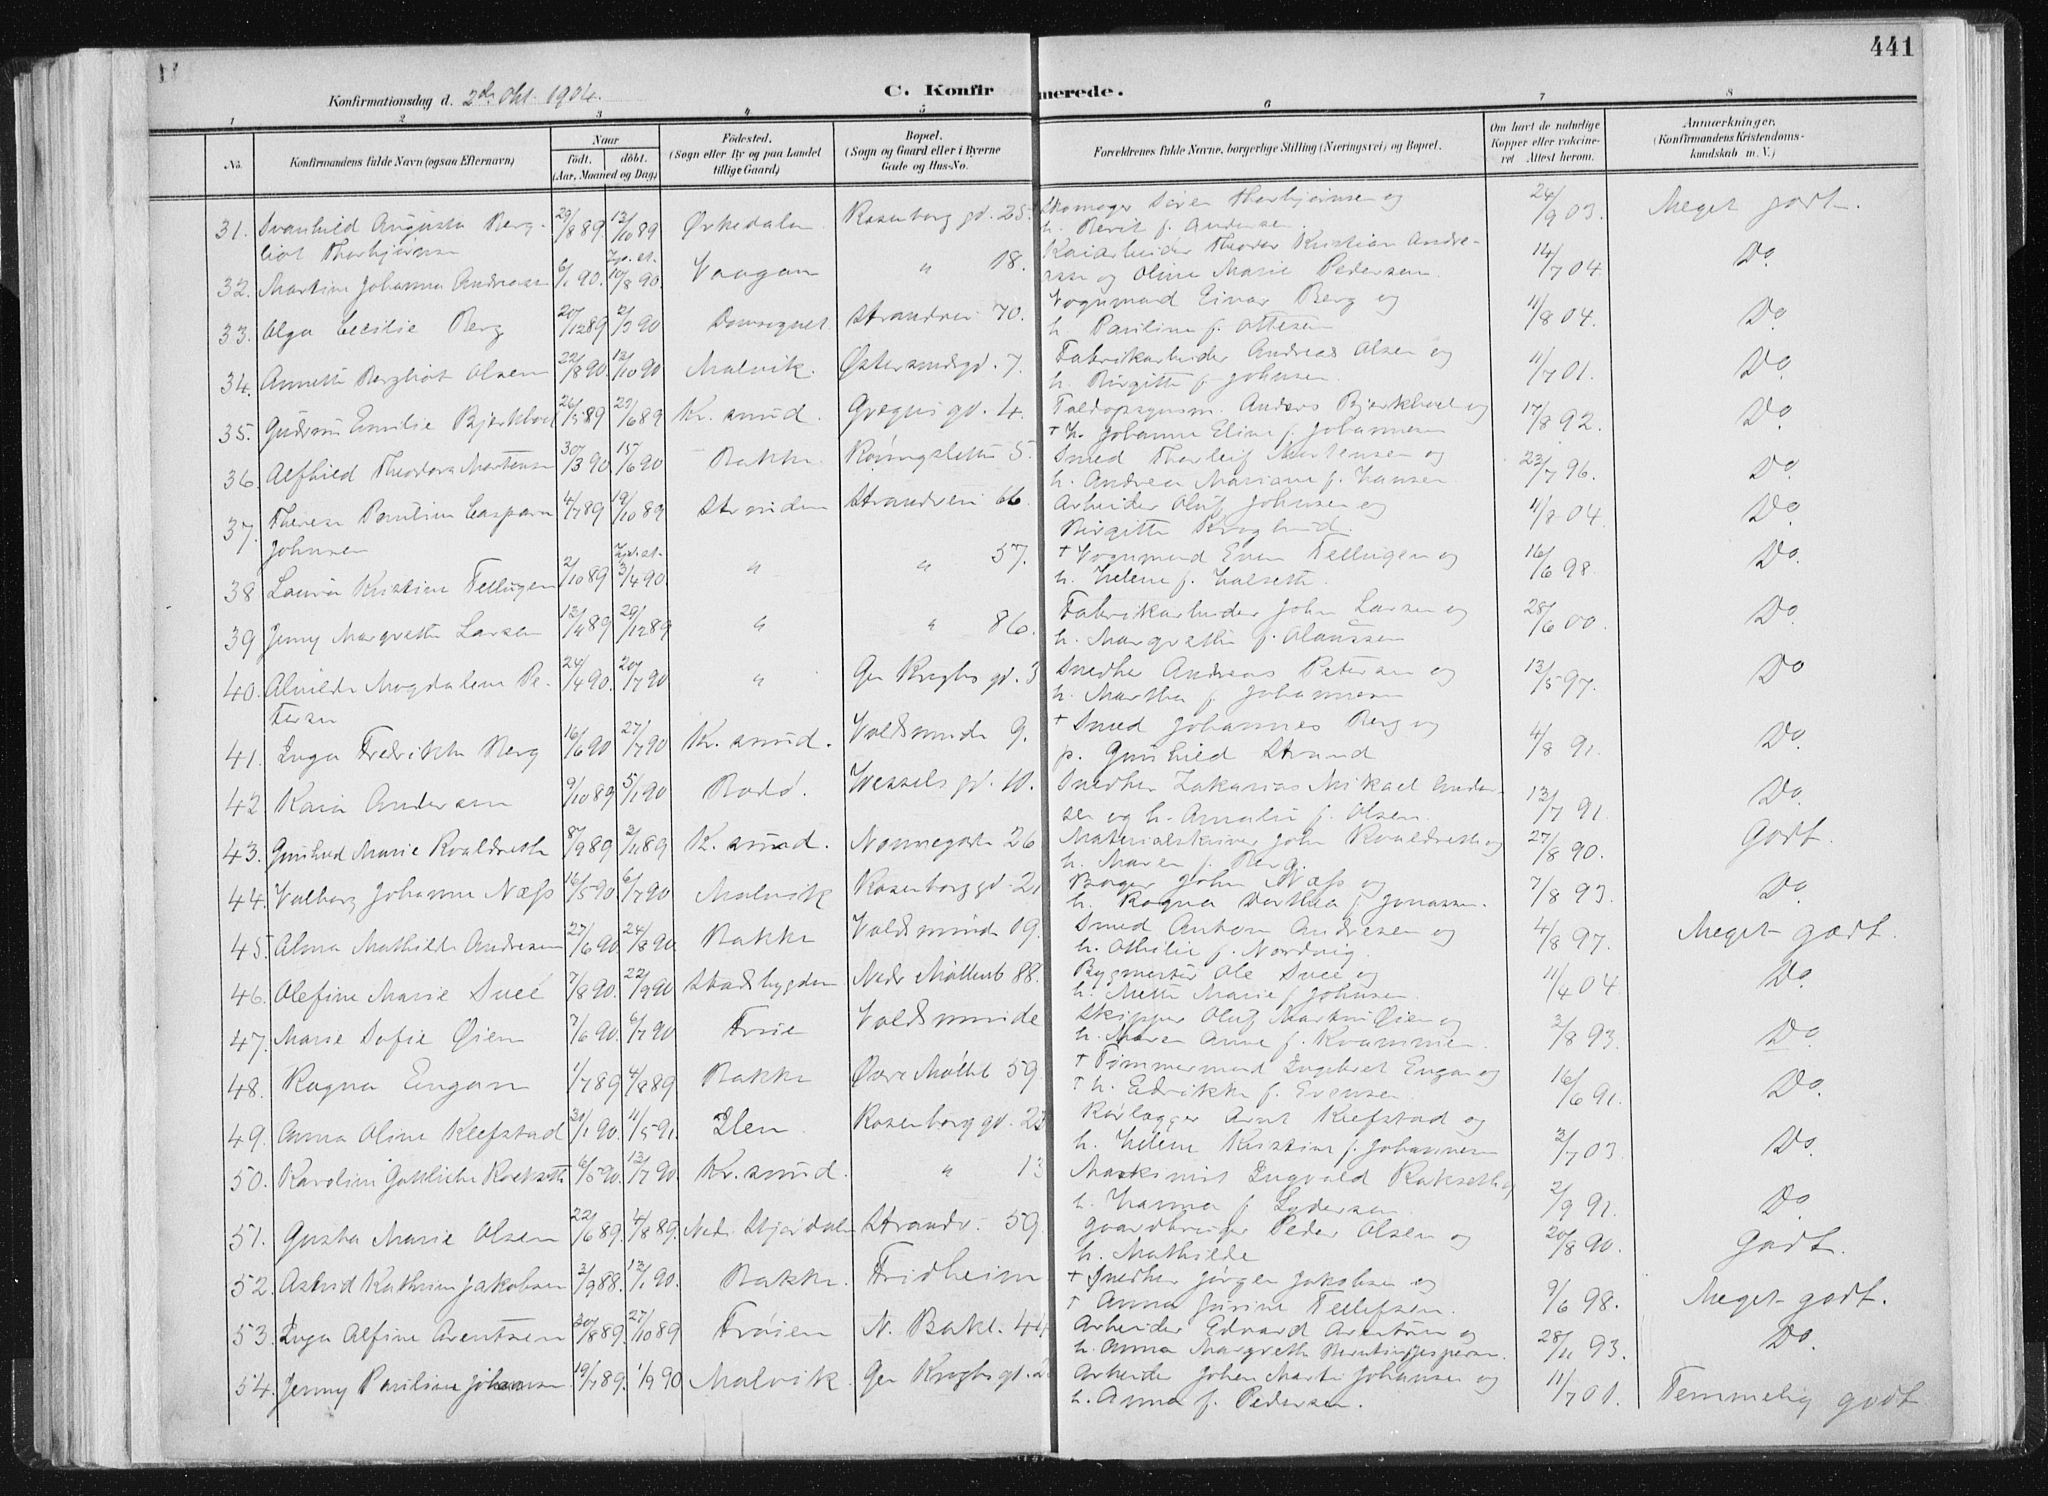 441
Konfirmationsdag d. 2den Okt. 1904.
C. Konfirmerede.
1 2 3 4 5 6 7 8
No.
Konfirmandens fulde Navn (ogsaa Efternavn)
Naar
födt. döbt.
(Aar, Maaned og Dag)
Födested.
(Sogn eller By og paa Landet
tillige Gaard)
Bopæl.
(Sogn og Gaard eller i Byerne
Gade og Hus-No.
Forældrenes fulde Navne, borgerlige Stilling (Næringsvei) og Bopæl.
Om havt de naturlige
Kopper eller vakcine-
ret Attest herom.
Anmærkninger.
(Konfirmandens Kristendoms-
kundskab m. V.)
31. Svanhild Augusta Berg- 29/8 89 13/10 89 Ørkedalen Rosenborg gd. 25. Skomager Sören Thorbjörnsen og 24/9 03. Meget godt.
liot Thorbjörnsen h. Berit f. Andersen.
32. Martine Johanna Andreassen 6/1 90. 10/8 90. Vaagan " 18. Kaiarbeider Theodor Kristian Andre- 14/7 04. Do
assen og Oline Marie Pedersen.
33. Olga Cecilie Berg 20/12 89 2/3 90 Domsognet Strandvei 70. Vognmand Einar Berg og 11/8 04. Do
h. Pauline f. Ottesen
34. Annette Bergliot Olsen 22/8 90. 12/10 90 Malvik. Östersundsgd. 7. Fabrikarbeider Andreas Olsen og 11/7 01. Do
h. Birgitte f. Johnsen.
35. Gudrun Emilie Bjerkhoel 26/5 89 23/6 89 Kr.sund. Gregusgd. 4. Toldopsynsm. Anders Bjerkhoel og 17/8 92. Do
+ h. Johanne Eline f. Johannesen
36. Alfhild Theodora Martensen 30/3 90 15/6 90 Bakke Röningsletten 5. Smed Thorleif Mortensen og 23/7 96. Do
h. Andrea Mariane f. Hansen.
37. Therese Pauline Caspara 4/7 89 19/10 89 Strinden Strandveien 66. Arbeider Oluf Johnsen og 11/8 04. Do
Johnsen Birgitte Kroglund.
38 Laura Kristine Tellugen 2/10 89 3/4 90 " " 57. + Vognmand Even Tellugen og 16/6 98. Do
h. Helene f. Halseth.
39 Jenny Margrethe Larsen 13/9 89 29/12 89 " " 86. Fabrikarbeider John Larsen og 28/6 00. Do
h. Margrethe f. Olaussen
40. Alvilde Magdalene Pe- 24/4 90. 20/7 90 " Ger Kroghs gd. 3 Snedker Andreas Petersen og 13/5 97. Do
tersen h. Martha f. Johannesen
41. Inga Fredrikke Berg 16/6 90 27/7 90 Kr.sund. Voldsminde 9. + Smed Johannes Berg og 4/8 91. Do
p. Gunhild Strand
42 Kaia Andersen 9/10 89 5/1 90 Bodö. Wessels gd. 10. Snedker Zakarias Mikael Ander- 13/7 91. Do
sen og h. Amalie f. Olsen.
43. Gunhild Marie Roaldseth 8/9 89 3/11 89 K.sund. Nonnegaten 26 Materialskriver John Roaldseth og 27/8 90. Godt.
h. Maren f. Berg.
44. Valborg Johanne Næss 16/5 90. 6/7 90 Malvik Rosenborg gd. 21 Bager John Næss og 7/8 93. Do
h. Ragna Dorthea f. Jonassen.
45. Alma Mathilde Andresen 27/6 90. 24/8 90. Bakke Voldsminde 19. Smed Anton Andresen og 4/8 97. Meget godt.
h. Othilie f. Nordvig.
46. Olefine Marie Sveé 7/8 90. 22/9 90 Stadsbygden Nedr Möllenb 88. Bygmester Ole Sveé og 11/4 04. Do.
h. Mette Marie f. Johnsen.
47. Marie Sofie Öien 7/6 90. 6/7 90 Fröie Voldsminde Skipper Oluf Martin Öien og 3/8 93. Do.
h. Maren Anna f. Kvammen.
48. Ragna Engan 1/7 89 4/8 89 Bakke Övre Möllebl 59. + Tömmermand Ingebret Engan og 16/6 91. Do
+ h. Edrikke f. Evensen.
49. Anna Oline Klefstad 31/1 90. 11/5 91. Ilen. Rosenborg gd. 23 Rörlægger Arnt Klefstad og 3/7 03. Do
h. Helene Kristine f. Johannesen
50. Karoline Gotliebe Roksseth 6/5 90. 13/7 90. Kr.sund. " 13 Maskinist Ingvald Roksseth og 2/9 91. Do
h. Hanna f. Lydersen.
51. Gusta Marie Olsen 22/6 89. 4/8 89. Ned. Stjördalen Strandv. 59. Gaardbruger Peder Olsen og 20/8 90. Godt.
h. Mathilde
52. Astrid Kathrine Jakobsen 3/9 88. 12/1 90. Bakke. Fridheim + Snedker Jörgen Jakobsen og 9/6 98. Meget godt.
+ Anna Jörine Tellefsen.
53. Inga Alfine Arentsen 30/8 89. 27/10 89 Fröien N. Bakl. 44 Arbeider Edvard Arentsen og 28/11 93. Do.
h. Anna Margrethe Berntine Jespersen.
54. Jenny Pauline Johansen 19/7 89. 1/9 90 Malvik Ger Kroghs gd. Arbeider Johan Martin Johansen og 11/7 01. Temmelig godt
h. Anna f. Pedersen.